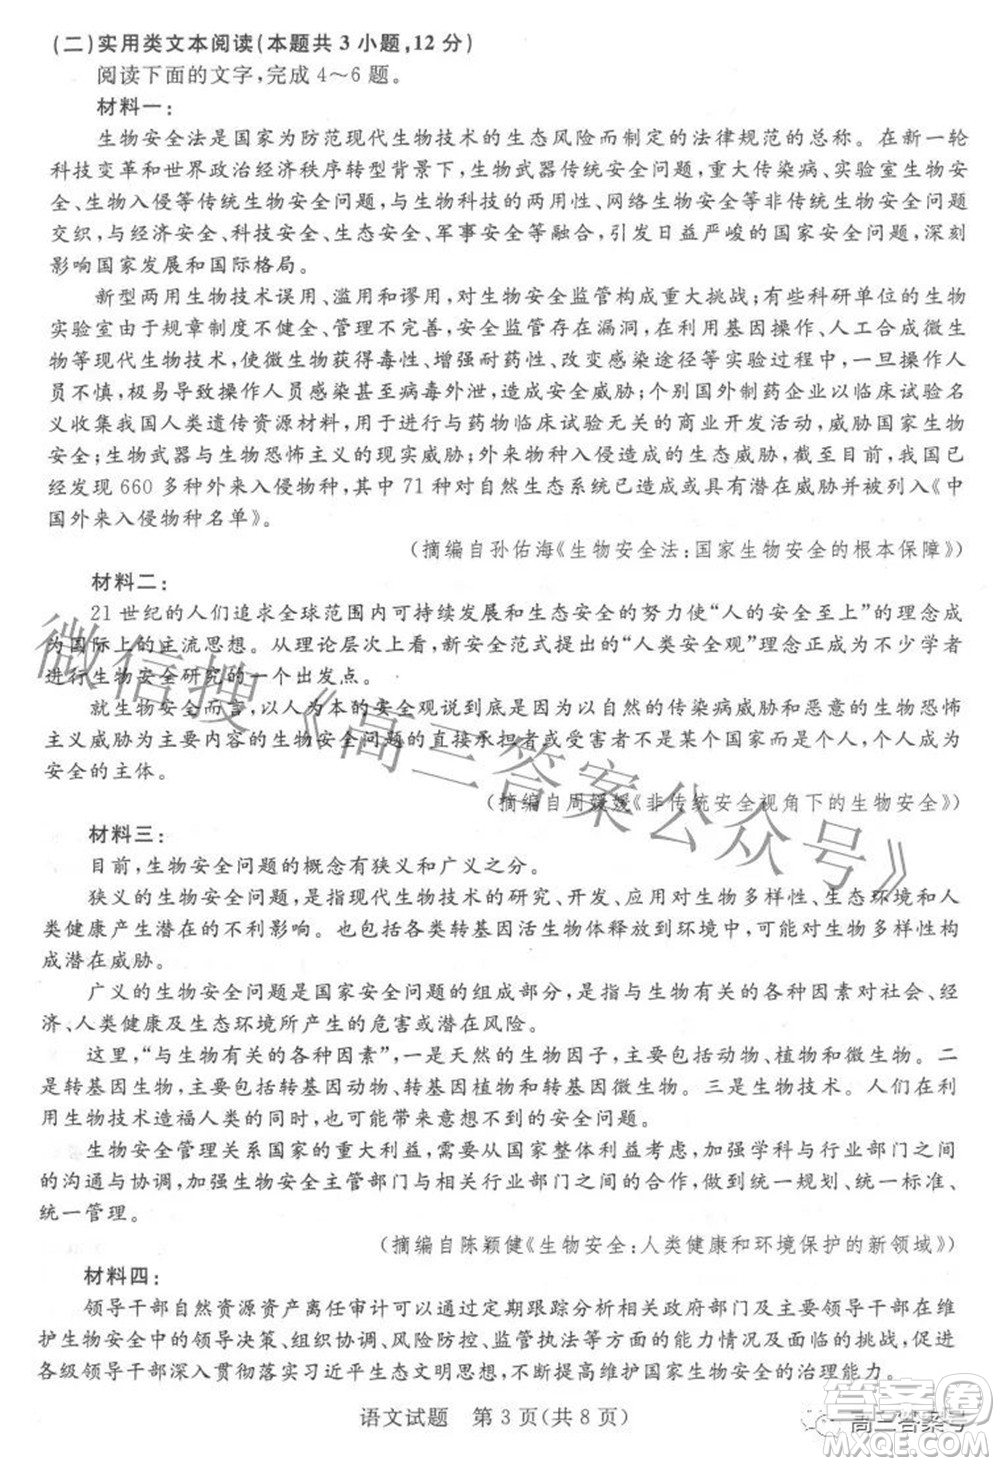 (二)实用类文本阅读(本题共3小题,12分)
阅读下面的文字,完成4～6题。
材料一:
生物安全法是国家为防范现代生物技术的生态风险而制定的法律规范的总称。在新一轮
科技变革和世界政治经济秩序转型背景下,生物武器传统安全问题,重大传染病、实验室生物安
全、生物入侵等传统生物安全问题,与生物科技的两用性、网络生物安全等非传统生物安全问题
交织,与经济安全、科技安全、生态安全、军事安全等融合,引发日益严峻的国家安全问题,深刻
影响国家发展和国际格局。
新型两用生物技术误用、滥用和谬用,对生物安全监管构成重大挑战;有些科研单位的生物
实验室由于规章制度不健全、管理不完善,安全监管存在漏洞,在利用基因操作、人工合成微生
物等现代生物技术,使微生物获得毒性、增强耐药性、改变感染途径等实验过程中,一旦操作人
员不慎,极易导致操作人员感染甚至病毒外泄,造成安全威胁;个别国外制药企业以临床试验名
义收集我国人类遗传资源材料,用于与药物临床试验无关的商业开发活动,威胁国家生物
安全;生物武器与生物恐怖主义的现实威胁;外来物种入侵造成的生态威胁,截至目前,我国已
经发现660多种外来入侵物种,其中71种对自然生态系统已造成或具有潜在威胁并被列入《中
国外来入侵物种名单》。
(摘编自孙佑海《生物安全法:国家生物安全的根本保障》)
材料二:
21世纪的人们追求全球范围内可持续发展和生态安全的努力使“人的安全至上”的理念成
为国际上的主流思想。从理论层次上看,新安全范式提出的“人类安全观”理念正成为不少学者
进行生物安全研究的一个出发点。
就生物安全而言,以人为本的安全观说到底是因为以自然的传染病威胁和恶意的生物恐怖
主义威胁为主要内容的生物安全问题的直接承担者或受害者不是某个国家而是个人,个人成为
安全的主体。
(摘编自周媛媛《非传统安全视角下的生物安全》)
材料三:
目前,生物安全问题的概念有狭义和广义之分。
狭义的生物安全问题,是指现代生物技术的研究、开发、应用对生物多样性、生态环境和人
类健康产生潜在的不利影响。也包括各类转基因活生物体释放到环境中,可能对生物多样性构
成潜在威胁。
广义的生物安全问题是国家安全问题的组成部分,是指与生物有关的各种因素对社会、经
济、人类健康及生态环境所产生的危害或潜在风险。
这里,“与生物有关的各种因素”,一是天然的生物因子,主要包括动物、植物和微生物。二
是转基因生物,主要包括转基因动物、转基因植物和转基因微生物。三是生物技术。人们在利
用生物技术造福人类的同时,也可能带来意想不到的安全问题。
生物安全管理关系国家的重大利益,需要从国家整体利益考虑,加强学科与行业部门之间
的沟通与协调,加强生物安全主管部门与相关行业部门之间的合作,做到统一规划、统一标准、
统一管理。
(摘编自陈颖健《生物安全:人类健康和环境保护的新领域》)
材料四:
领导干部自然资源资产离任审计可以通过定期跟踪分析相关政府部门及主要领导干部在维
护生物安全中的领导决策、组织协调、风险防控、监管执法等方面的能力及面临的挑战,促进
各级领导干部深入贯彻落实习近平生态文明思想,不断提高维护国家生物安全的治理能力。
语文试题 第3页(共8页)
微信搜《高三答案公众号》
高三答案号
答案圈
MXQE.COM